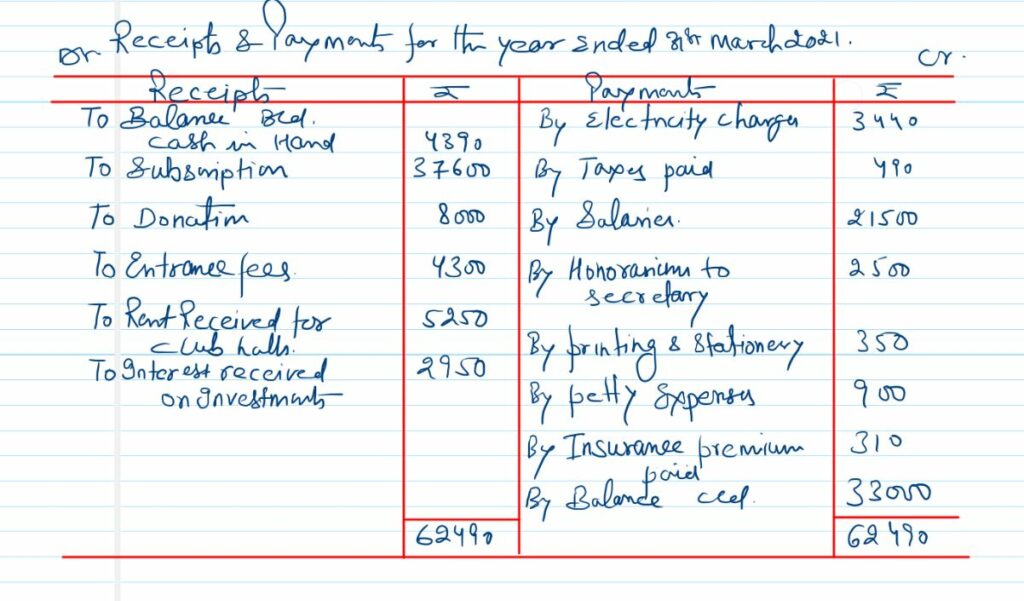 Dr Receipts & Payments for the year ended 31st March 2021. Cr.
Receipts ₹ Payments ₹
To Balance B/d. By Electricity charges 3440
cash in Hand 4390
To Subscription 37600 By Taxes paid 490
To Donation 8000 By Salaries. 21500
To Entrance fees. 4300 By Honorarium to 2500
secretary
To Rent Received for 5250
club halls. By printing & Stationery 350
To Interest received 2950
on Investments By petty Expenses 900
By Insurance premium 310
paid
By Balance c/d. 33000
62490 62490